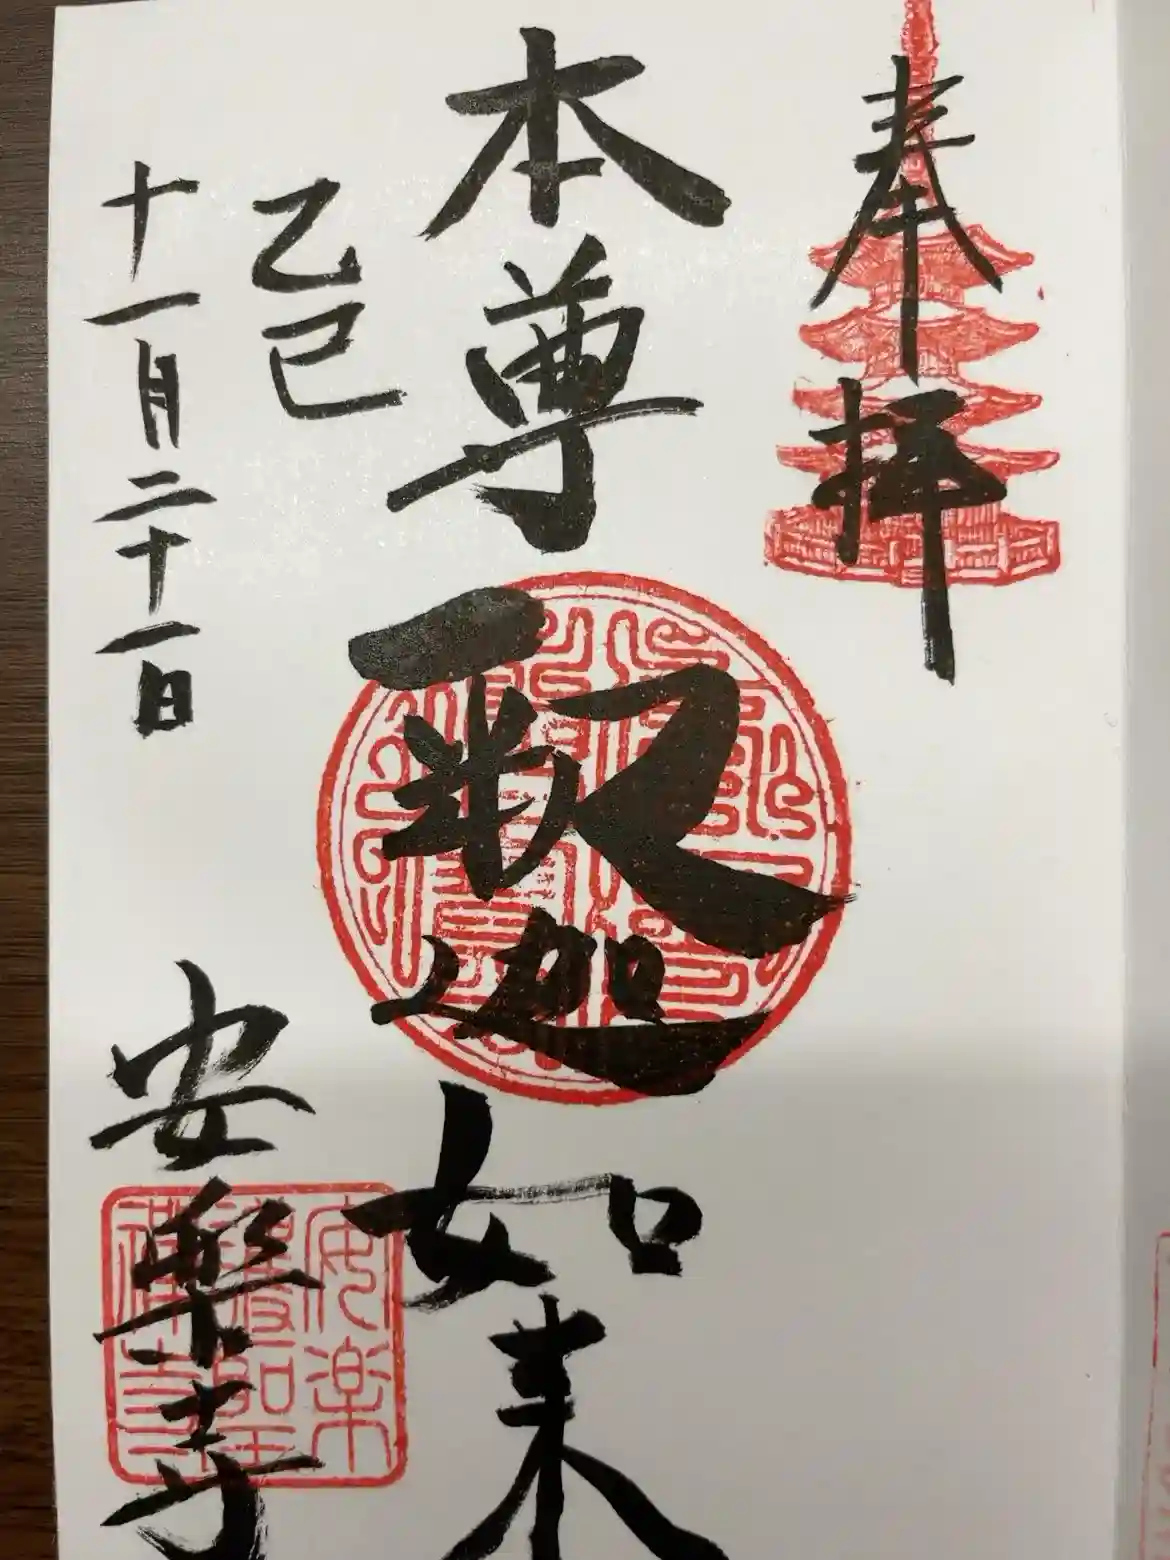 奉拝
本尊 釈迦如来
乙巳
十一月二十一日
安楽寺